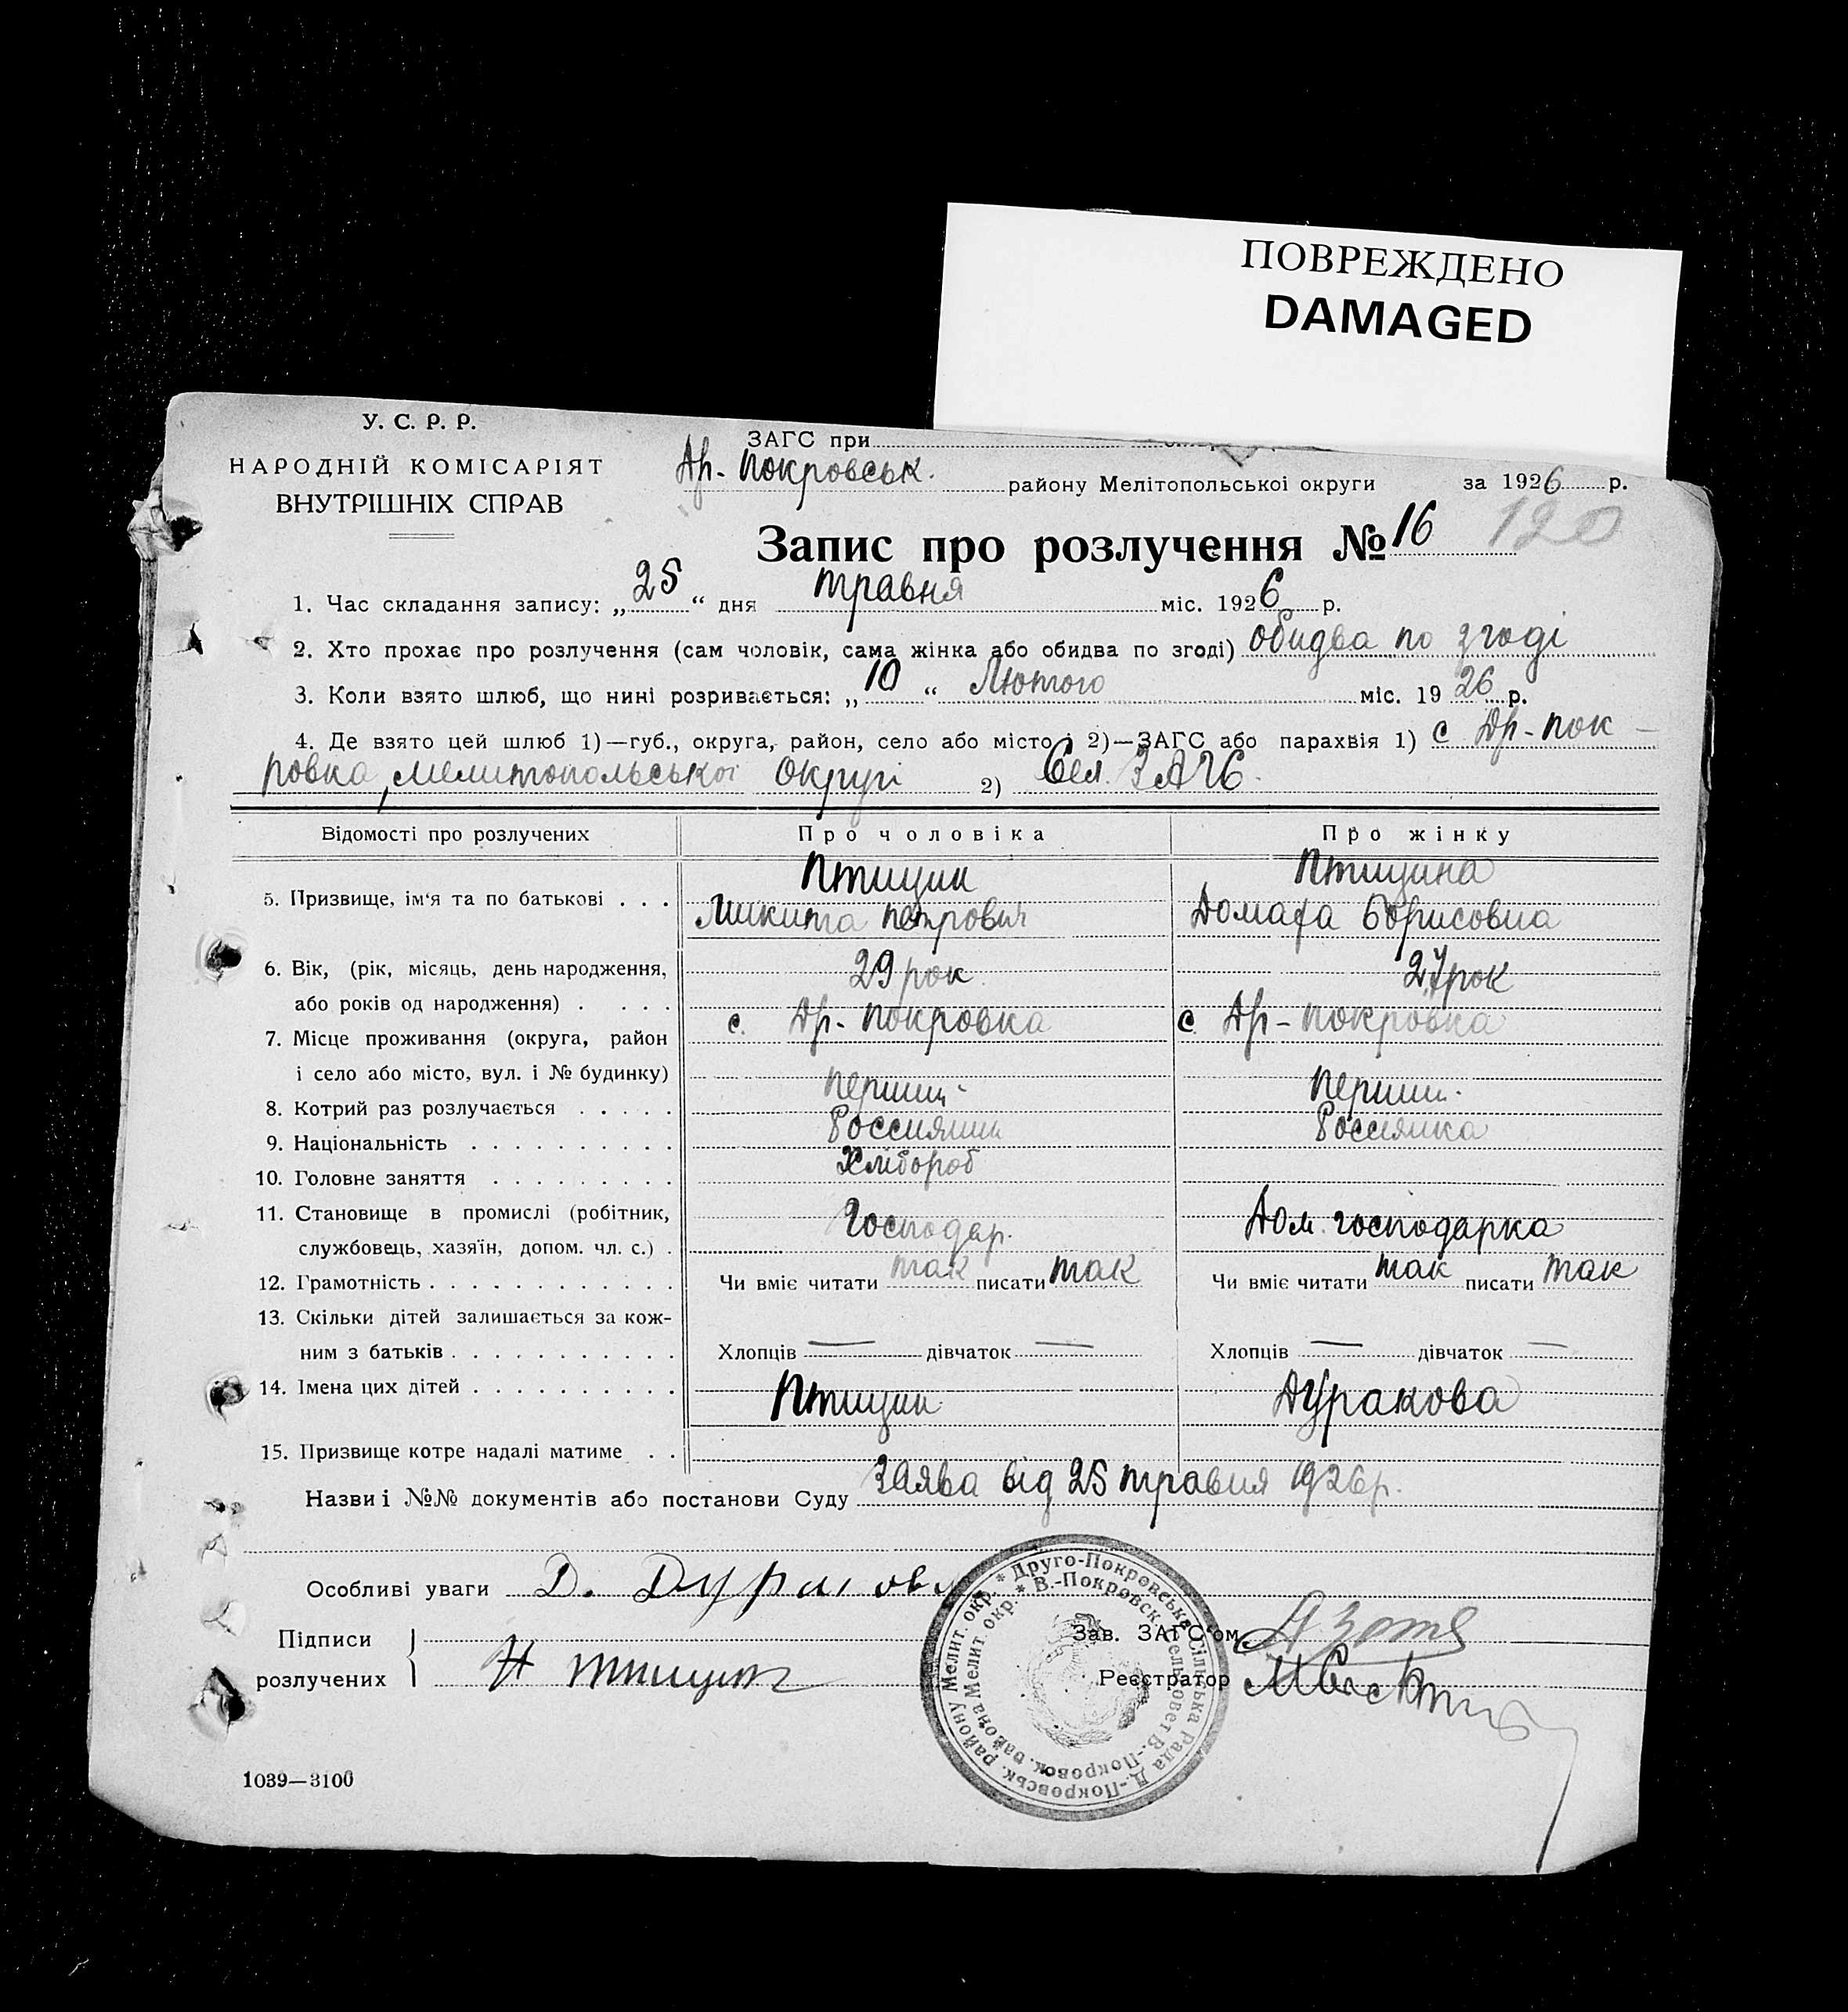 ПОВРЕЖДЕНО
DAMAGED
У. С. Р. Р.
НАРОДНІЙ КОМІСАРІЯТ
ВНУТРІШНІХ СПРАВ
ЗАГС при
Др-Покровськ. району Мелітопольської округи за 1926 р.
Запис про розлучення № 16 120
1. Час складання запису: „25“ дня травня міс. 1926 р.
2. Хто прохає про розлучення (сам чоловік, сама жінка або обидва по згоді) обидва по згоді
3. Коли взято шлюб, що нині розривається: „10“ Лютого міс. 1926 р.
4. Де взято цей шлюб 1)—губ., округа, район, село або місто і 2)—ЗАГС або парахвія 1) с Др-пок-
ровка, мелитопольської округі 2) Сел. ЗАГС.
Відомості про розлучених Про чоловіка Про жінку
Птицин Птицина
5. Призвище, ім'я та по батькові . . . Микита петрович Домаха Борисовна
6. Вік, (рік, місяць, день народження, 29 рок 27 рок
або років од народження) . . . .
7. Місце проживання (округа, район с. Др-покровка с Др-покровка
і село або місто, вул. і № будинку)
8. Котрий раз розлучається . . . . . перший перший
9. Національність . . . . . . . . . . Россиянин Россиянка
10. Головне заняття . . . . . . . . . Хлібороб
11. Становище в промислі (робітник, Господар. Дом. господарка
службовець, хазяїн, допом. чл. с.) .
12. Грамотність . . . . . . . . . . . . Чи вміє читати так писати так Чи вміє читати так писати так
13. Скільки дітей залишається за кож-
ним з батьків . . . . . . . . . . . Хлопців — дівчаток — Хлопців — дівчаток —
14. Імена цих дітей . . . . . . . . . . Птицин Дуракова
15. Призвище котре надалі матиме . .
Назви і №№ документів або постанови Суду Заява від 25 травня 1926 р.
Особливі уваги Д. Дуракова
Підписи
розлучених Н птицин
Зав. ЗАГС'ом
Реєстратор
* Друго-Покровська Сільська Рада Д.-Покровськ. району Мелит. окр.
* В.-Покровск. сельсовет В.-Покровск. района Мелит. окр.
1039—3100